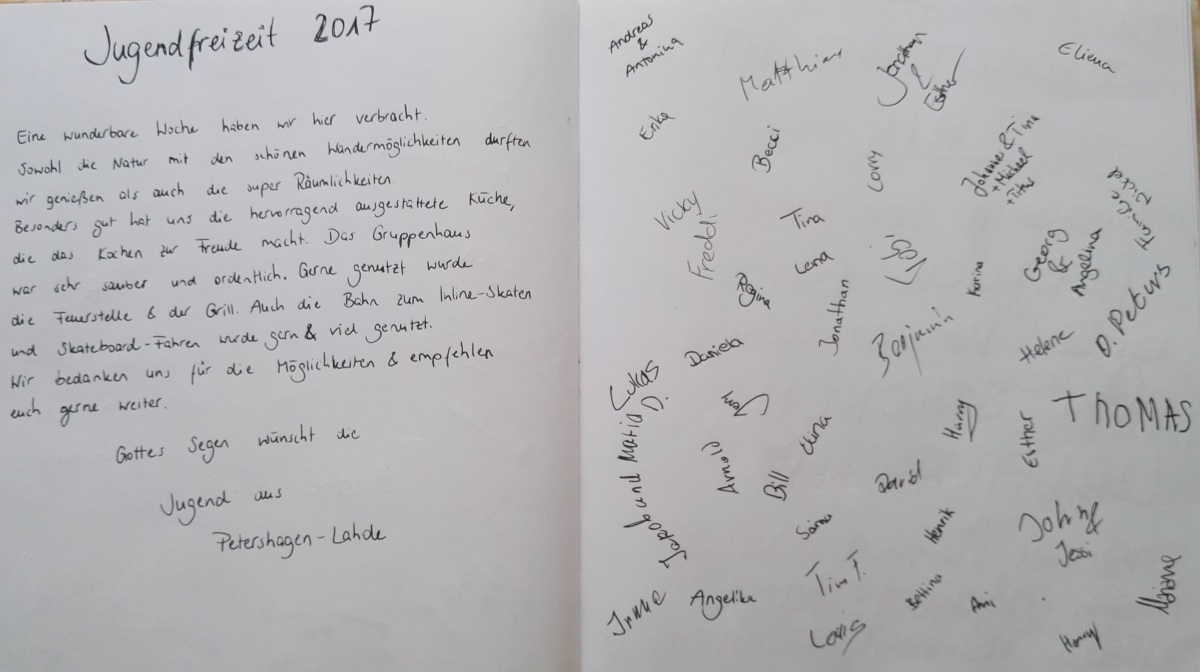 Jugendfreizeit 2017
Eine wunderbare Woche haben wir hier verbracht.
Sowohl die Natur mit den schönen Wandermöglichkeiten durften
wir genießen als auch die super Räumlichkeiten.
Besonders gut hat uns die hervorragend ausgestattete Küche,
die das Kochen zur Freude macht. Das Gruppenhaus
war sehr sauber und ordentlich. Gerne genutzt wurde
die Feuerstelle & der Grill. Auch die Bahn zum Inline-Skaten
und Skateboard-Fahren wurde gern & viel genutzt.
Wir bedanken uns für die Möglichkeiten & empfehlen
euch gerne weiter.
Gottes Segen wünscht die
Jugend aus
Petershagen-Lahde
Andreas
&
Antonina
Matthias
Jonathan
&
Esther
Eliena
Erika
Becci
Corry
Johannes & Tina
+ Michael
+ Titus
Vicky
Freddi
Tina
Lena
Regina
Karina
Georg
&
Angelina
Jonathan
Benjamin
Helene
D. Peters
Daniela
Lukas
D.
Jakob und Maria
Arnold
Bill
Elina
Harry
Esther
THOMAS
David
Henrik
John &
Jessi
Tim T.
Irma
Angelika
Bettina
Ani
Harry